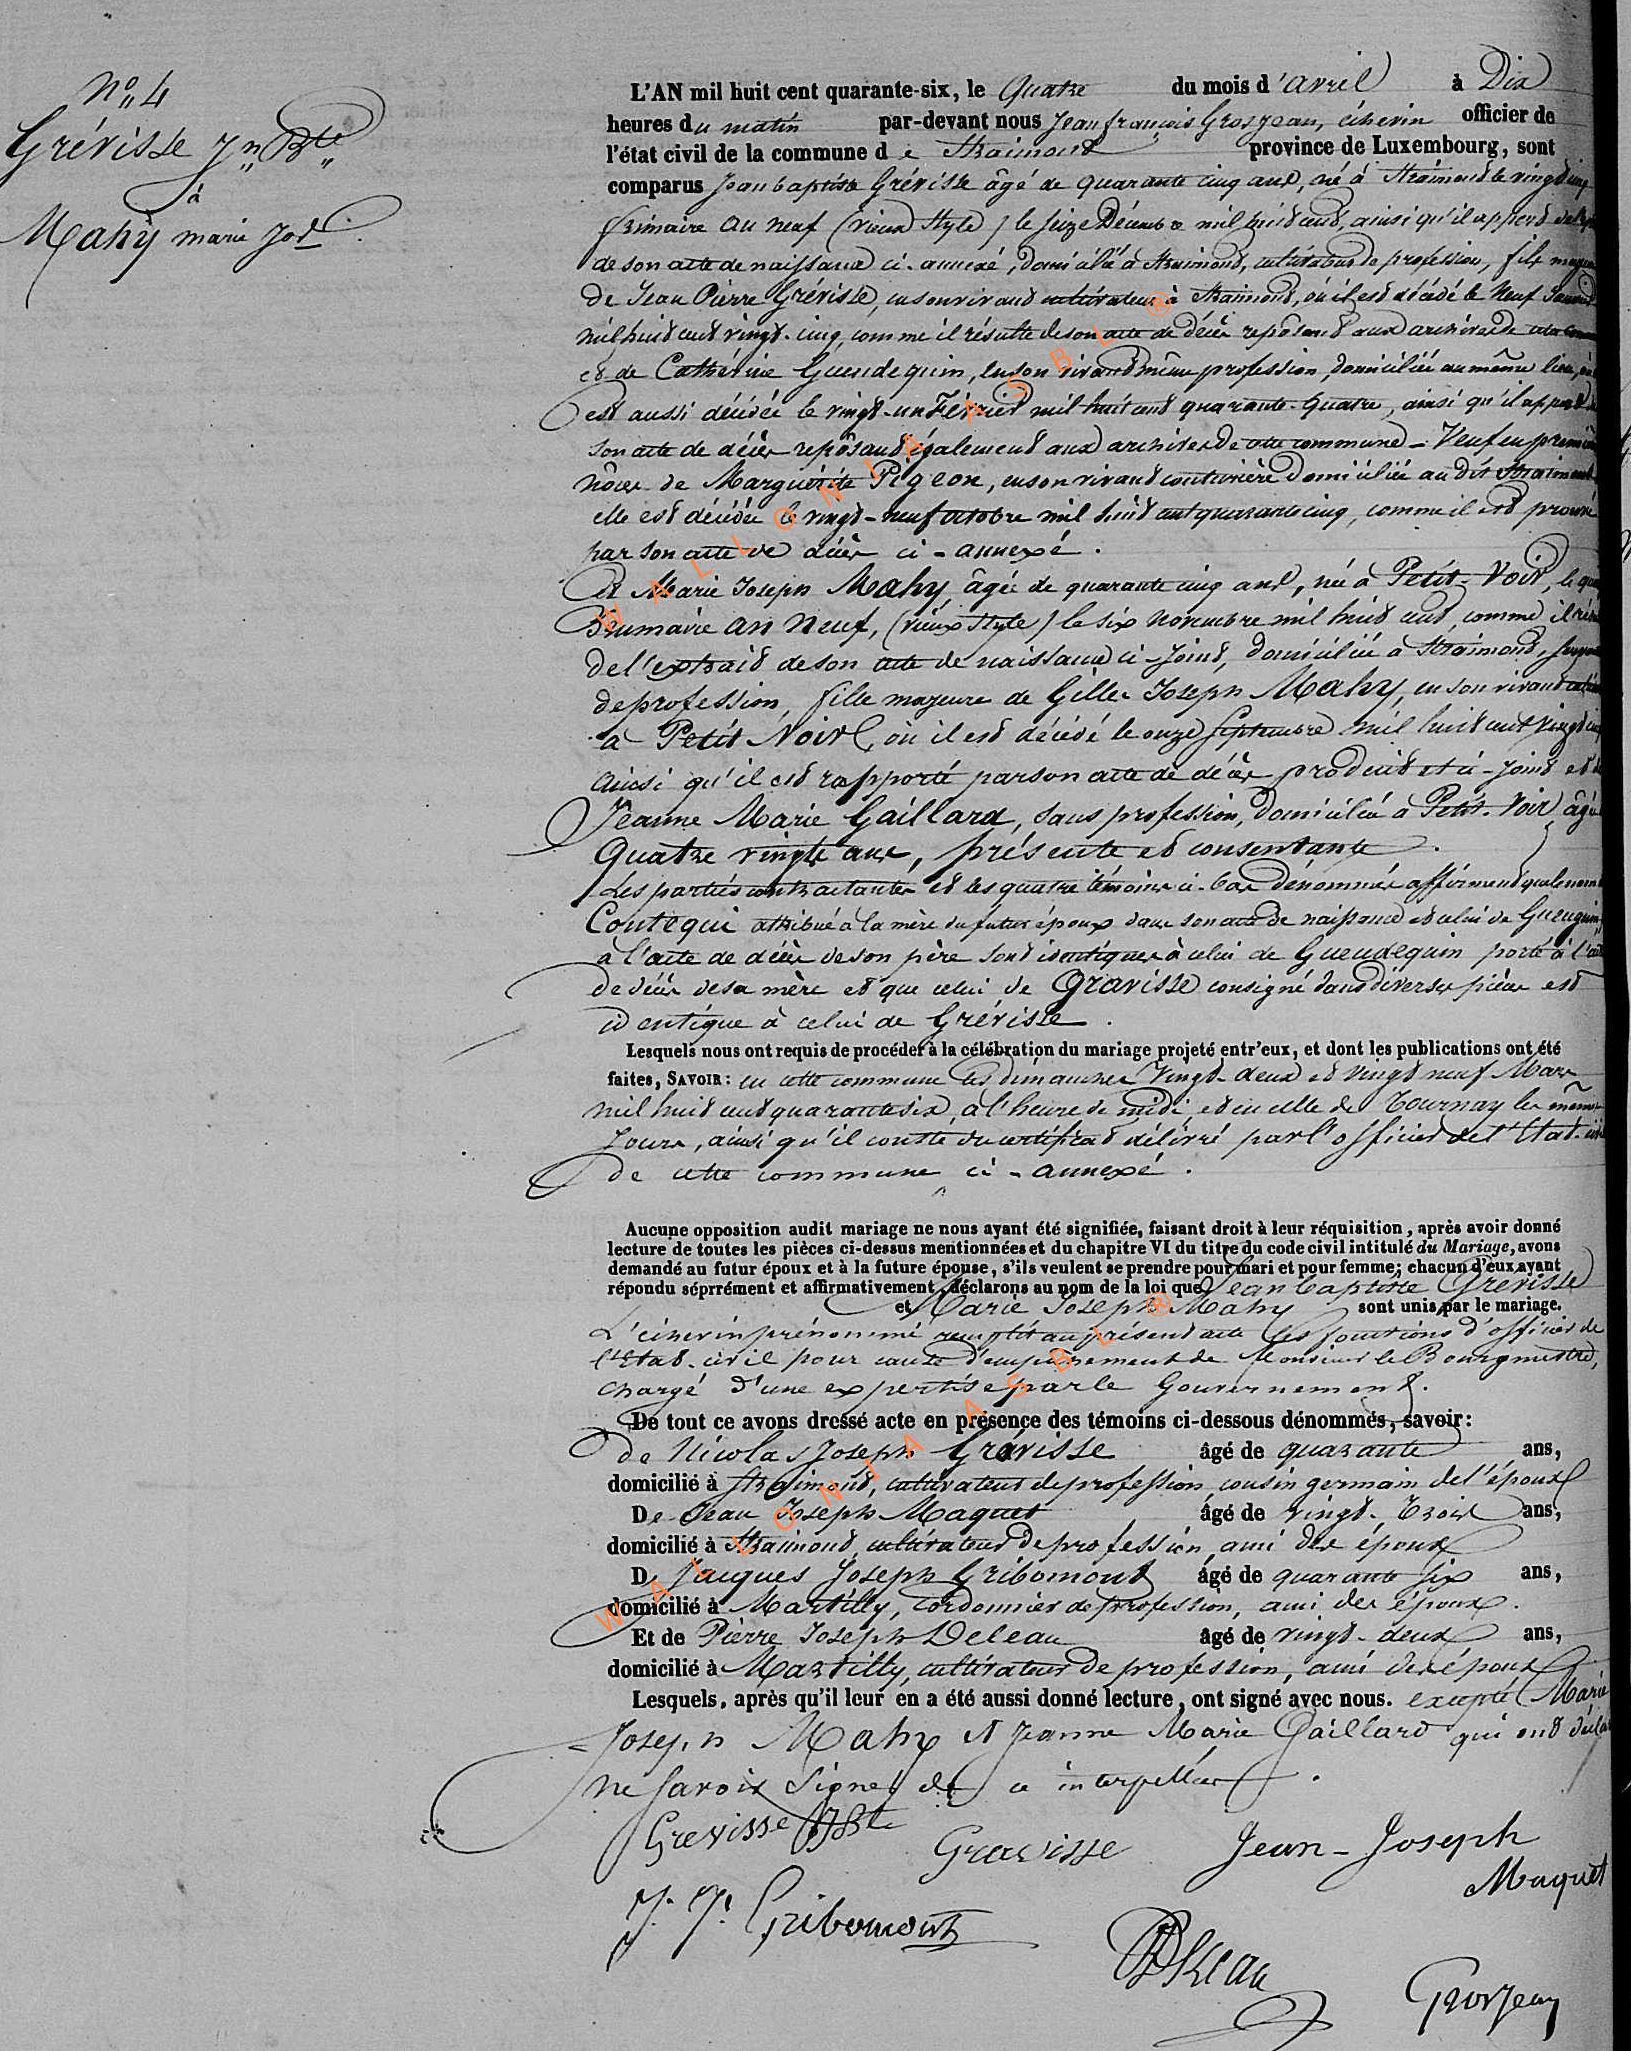 N° 4
Grévisse Jn Bte
à
Mahy marie Jos
L'AN mil huit cent quarante-six, le Quatre du mois d'avril à Dix
heures du matin par-devant nous Jean françois Grosjean, échevin officier de
l'état civil de la commune de Straimont province de Luxembourg, sont
comparus Jean baptiste Grévisse âgé de quarante cinq ans, né à Straimont le vingt cinq
frimaire an neuf (vieux style) le seize Décembre mil huit cent, ainsi qu'il appert de
de son acte de naissance ci-annexé, domicilié à Straimont, cultivateur de profession, fils majeur
de Jean Pierre Grévisse, en son vivant cultivateur à Straimont, où il est décédé le Neuf Janvier
mil huit cent vingt-cinq, comme il résulte de son acte de décès reposant aux archives de cette
et de Cathérine Gueudequin, en son vivant même profession, domiciliée au même lieu, où
est aussi décédée le vingt-un Février mil huit cent quarante-quatre, ainsi qu'il appert de
son acte de décès reposant également aux archives de cette commune - Veuf en premières
nôces de Marguérite Pigeon, en son vivant couturière domiciliée au dit Straimont
elle est décédée le vingt-neuf octobre mil huit cent quarante cinq, comme il est prouvé
par son acte de décès ci-annexé.
Et Marie Joseph Mahy, âgée de quarante cinq ans, née à Petit-Voir, le
Brumaire an Neuf, (vieux style) le six novembre mil huit cent, comme il
de l'extrait de son acte de naissance ci-joint, domiciliée à Straimont,
de profession, fille majeure de Gilles Joseph Mahy, en son vivant
à Petit Voir, où il est décédé le onze septembre mil huit cent vingt
ainsi qu'il est rapporté par son acte de décès produit et ci-joint et de
Jeanne Marie Gaillard, sans profession, domiciliée à Petit-Voir âgée
Quatre vingts ans, présente et consentante.
Les parties contractantes et les quatre témoins ci-bas dénommés affirment que le nom
Coutequi attribué à la mère du futur époux dans son acte de naissance et celui de Gueuquin
à l'acte de décès de son père sont identiques à celui de Gueudequin porté à l'acte
de décès de sa mère et que celui de Gravisse consigné dans diverses pièces est
identique à celui de Grévisse.
Lesquels nous ont requis de procéder à la célébration du mariage projeté entr'eux, et dont les publications ont été
faites, SAVOIR: en cette commune les dimanches Vingt-deux et Vingt neuf Mars
mil huit cent quarante six, à l'heure de midi et en celle de Tournay les mêmes
Jours, ainsi qu'il conste du certificat délivré par l'officier de l'Etat-civil
de cette commune ci-annexé.
Aucune opposition audit mariage ne nous ayant été signifiée, faisant droit à leur réquisition, après avoir donné
lecture de toutes les pièces ci-dessus mentionnées et du chapitre VI du titre du code civil intitulé du Mariage, avons
demandé au futur époux et à la future épouse, s'ils veulent se prendre pour mari et pour femme; chacun d'eux ayant
répondu séprrément et affirmativement, déclarons au nom de la loi que Jean baptiste Grévisse
et Marie Joseph Mahy sont unis par le mariage.
L'échevin prénommé remplit au présent acte les fonctions d'officier de
l'Etat-civil pour cause d'empêchement de Monsieur le Bourgmestre,
chargé d'une expertise par le Gouvernement.
De tout ce avons dressé acte en présence des témoins ci-dessous dénommés, savoir:
de Nicolas Joseph Grévisse âgé de quarante ans,
domicilié à Straimont, cultivateur de profession, cousin germain de l'époux
De Jean Joseph Maquet âgé de vingt-trois ans,
domicilié à Straimont, cultivateur de profession, ami des époux
De Jacques Joseph Gribomont âgé de quarante six ans,
domicilié à Martilly, cordonnier de profession, ami des époux.
Et de Pierre Joseph Deleau âgé de vingt-deux ans,
domicilié à Martilly, cultivateur de profession, ami des époux
Lesquels, après qu'il leur en a été aussi donné lecture, ont signé avec nous. excepté Marie
Joseph Mahy et Jeanne Marie Gaillard qui ont déclaré
ne savoir signer de ce interpellées.
Grevisse JBte
Gravisse
Jean-Joseph
Maquet
J. J. Gribomont
PDeleau
Grosjean
WALLONIA ASBL ®
WALLONIA ASBL ®